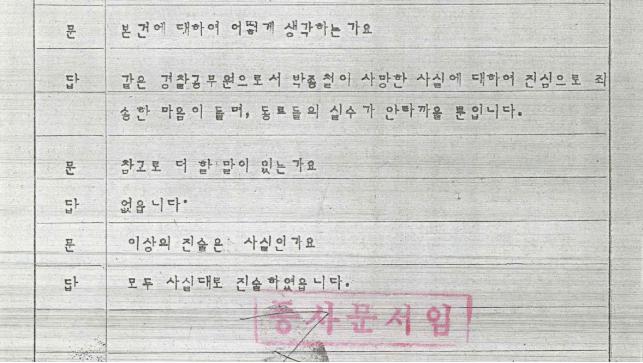 문 본건에 대하여 어떻게 생각하는가요
답 같은 경찰공무원으로서 박종철이 사망한 사실에 대하여 진심으로 죄
송한 마음이 들며, 동료들의 실수가 안타까울 뿐입니다.
문 참고로 더 할 말이 있는가요
답 없읍니다.
문 이상의 진술은 사실인가요
답 모두 사실대로 진술하였읍니다.
등사문서임